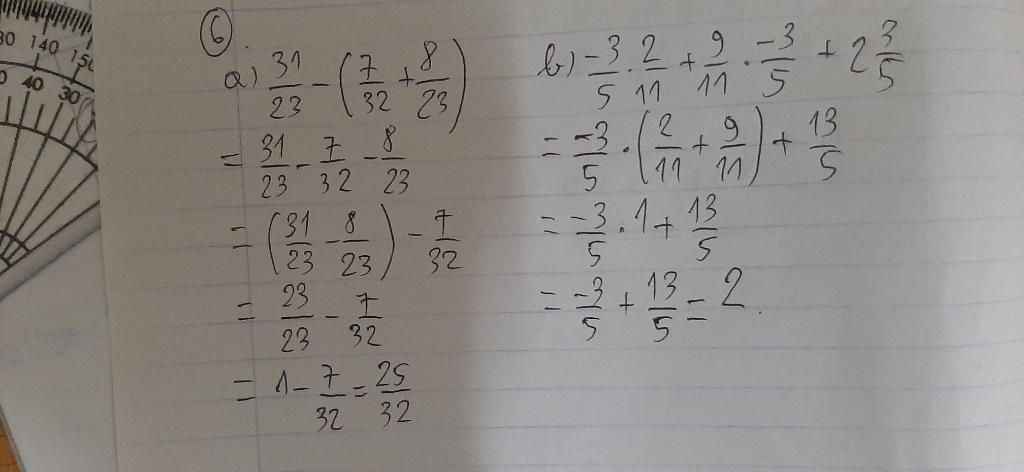 80 140 150
0 40 30
6.
a) 31/23 - (7/32 + 8/23)
= 31/23 - 7/32 - 8/23
= (31/23 - 8/23) - 7/32
= 23/23 - 7/32
= 1 - 7/32 = 25/32
b) -3/5 . 2/11 + 9/11 . -3/5 + 2 3/5
= -3/5 . (2/11 + 9/11) + 13/5
= -3/5 . 1 + 13/5
= -3/5 + 13/5 = 2.